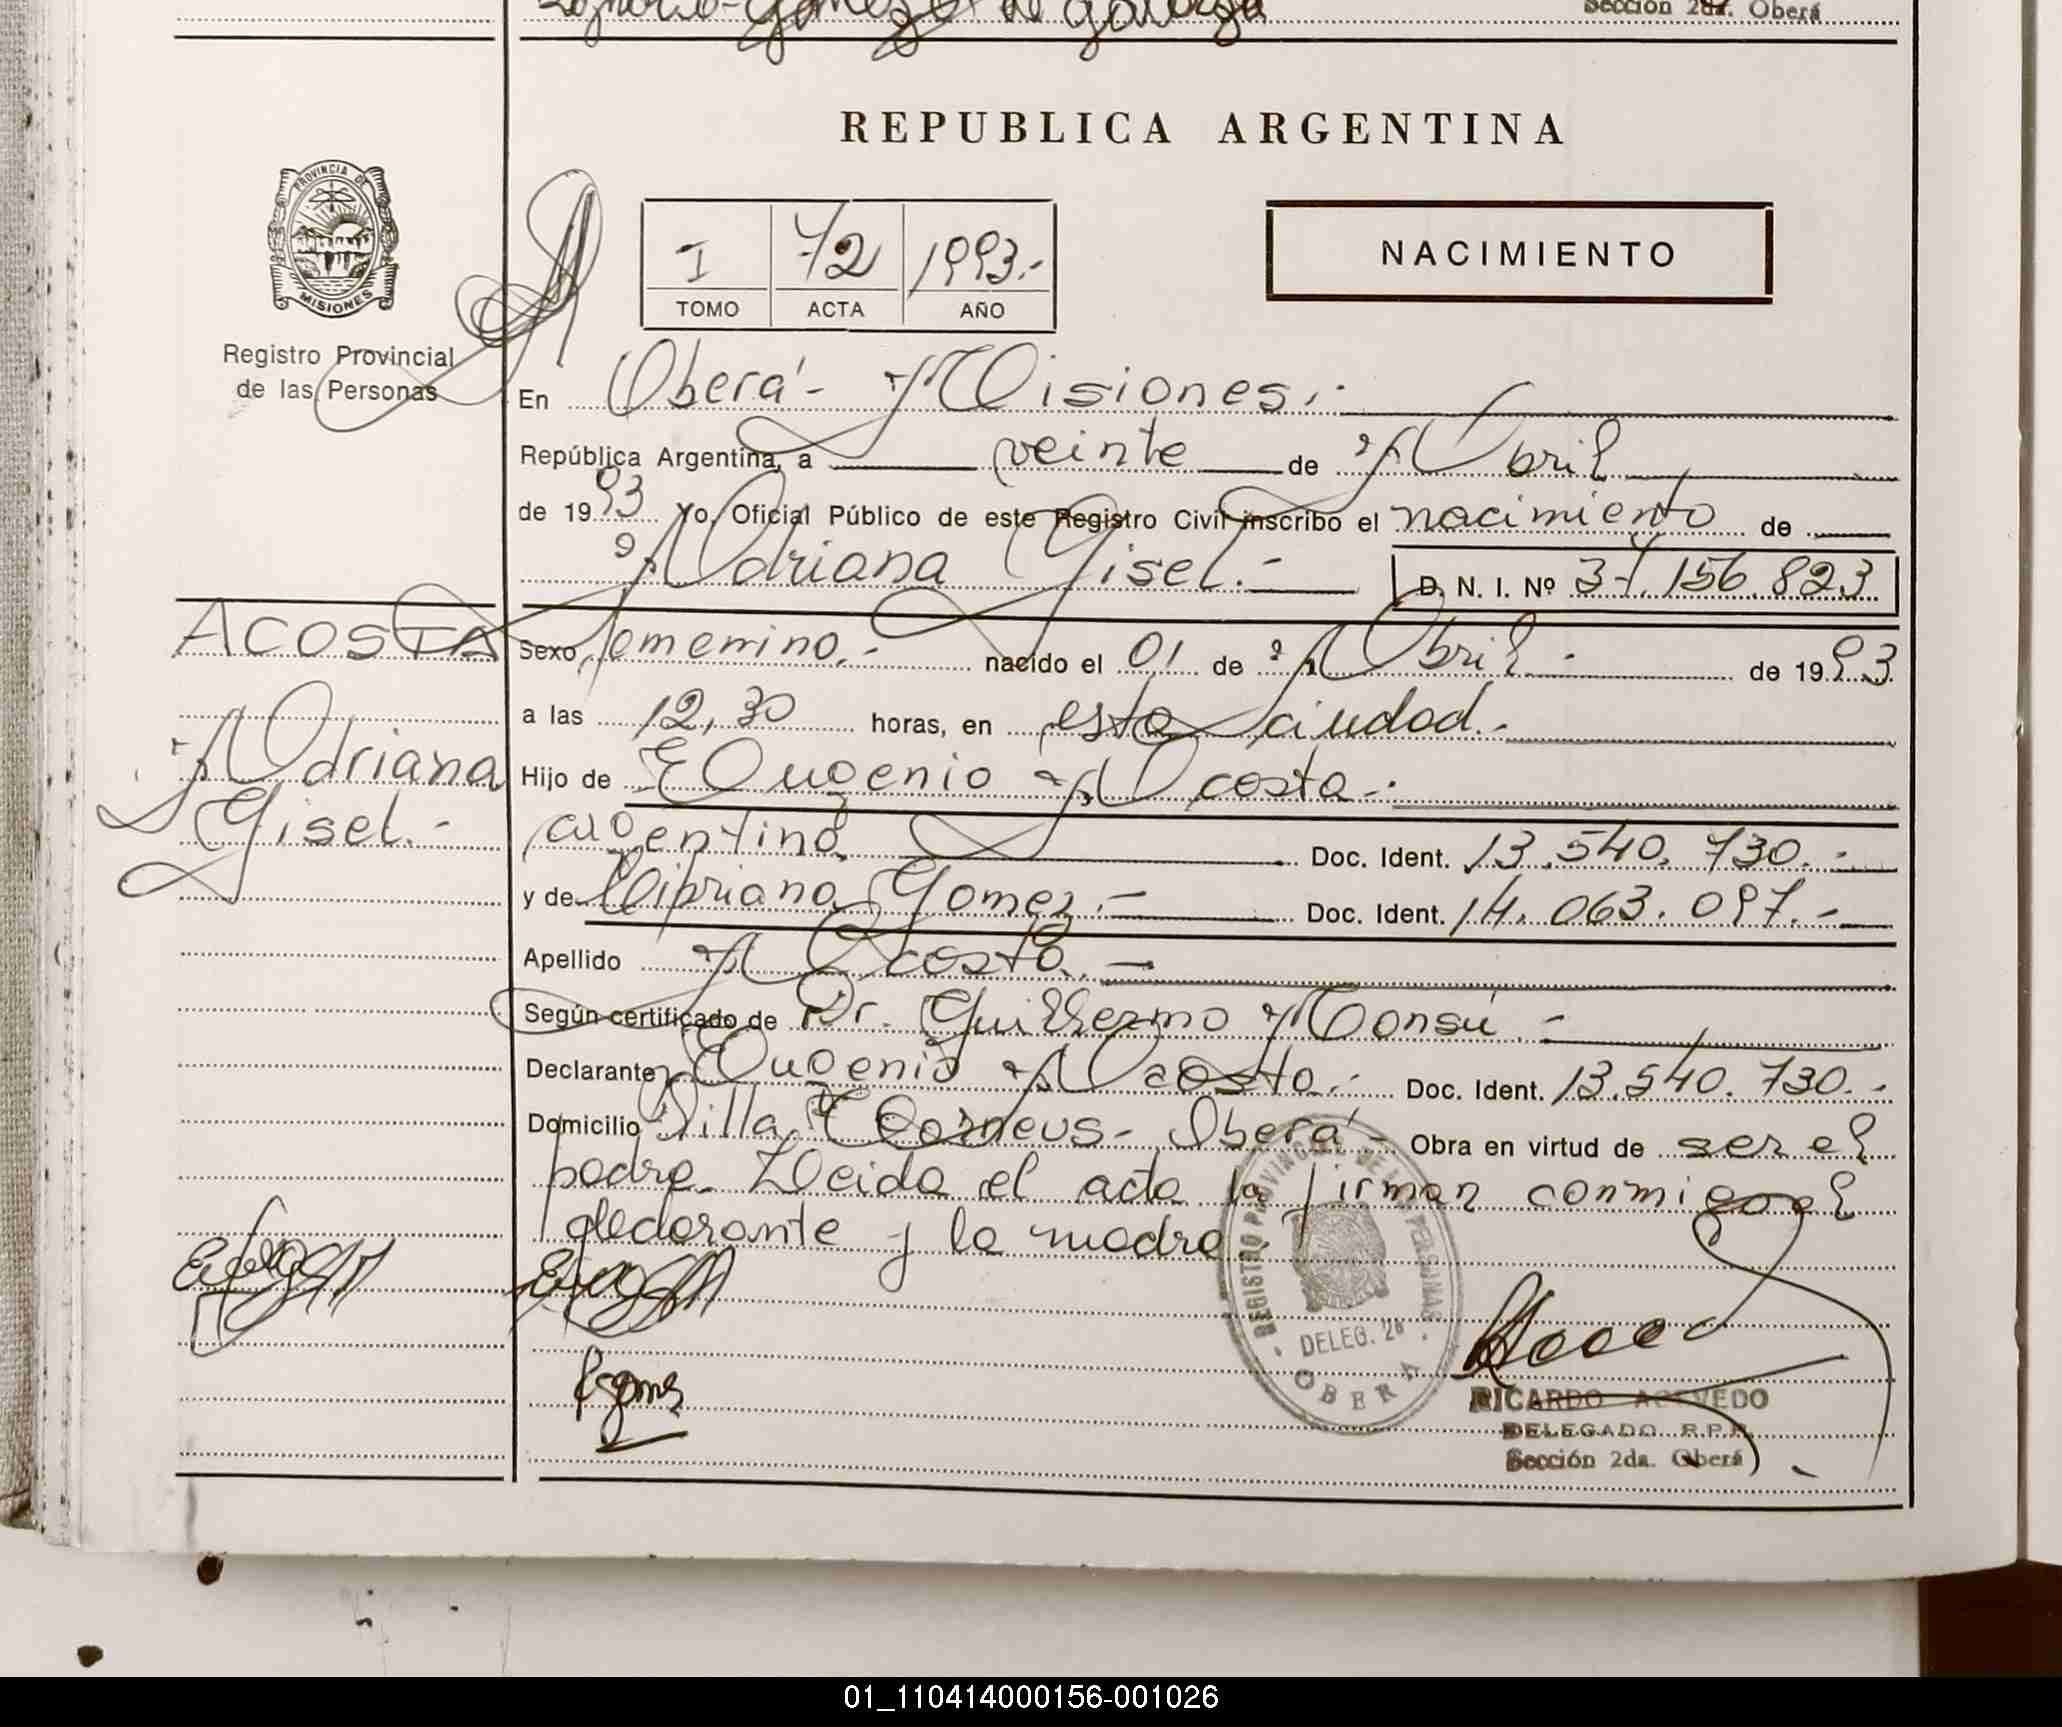 Sección 2da. Oberá
REPUBLICA ARGENTINA
PROVINCIA DE
MISIONES
Registro Provincial
de las Personas
I 72 1993.-
TOMO ACTA AÑO
NACIMIENTO
En Oberá - Misiones.-
República Argentina, a veinte de Abril
de 1993 Yo, Oficial Público de este Registro Civil inscribo el nacimiento de
Adriana Gisel.-
D. N. I. Nº 37.156.823
ACOSTA
Adriana
Gisel.-
Sexo femenino.- nacido el 01 de Abril.- de 1993
a las 12,30 horas, en esta ciudad.-
Hijo de Eugenio Acosta.-
argentina Doc. Ident. 13.540.730.-
y de Cipriana Gomez.- Doc. Ident. 14.063.097.-
Apellido Acosta.-
Según certificado de Dr. Guillermo Monsú.-
Declarante Eugenio Acosta.- Doc. Ident. 13.540.730.-
Domicilio Villa Oberá- Obra en virtud de ser el
padre. Leida el acta la firman conmigo el
declarante y la madre.
REGISTRO PROVINCIAL DE LAS PERSONAS
DELEG. 2a
OBERA
RICARDO ACEVEDO
DELEGADO R.P.P.
Sección 2da. Oberá
01_110414000156-001026